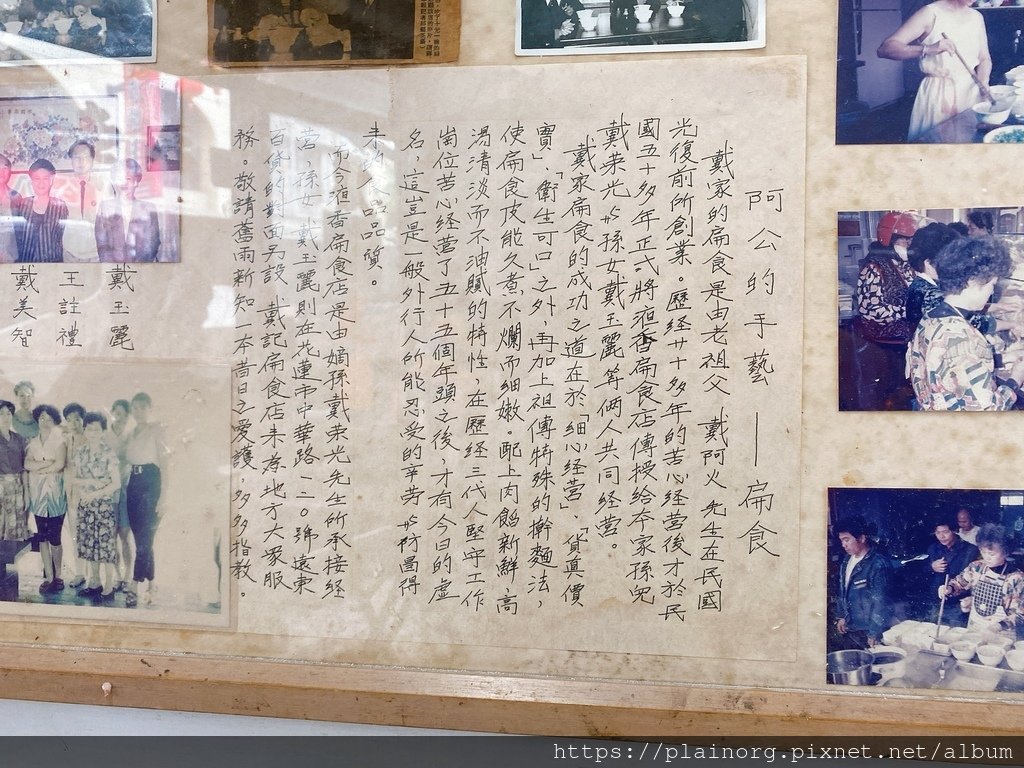 阿公的手藝——扁食
戴家的扁食是由老祖父 戴阿火 先生在民國
光復前所創業。歷經廿十多年的苦心經營後才於民
國五十多年正式將液香扁食店傳授給本家孫兒
戴荣光 與孫女戴玉麗等倆人共同經營。
戴家扁食的成功之道在於「細心經營」、「貨真價
實」、「衛生可口」之外,再加上祖傳特殊的擀麵法,
使扁食皮能久煮不爛而細嫩。配上肉餡新鮮,高
湯清淡而不油膩的特性,在歷經三代人堅守工作
崗位苦心經營了五十五個年頭之後,才有今日的虛
名,這豈是一般外行人所能忍受的辛勞與
食品品質。
而今液香扁食店是由嫡孫戴荣光先生所承接經
營,孫女 戴玉麗則在花蓮市中華路一二〇號遠東
百貨的對面另設 戴記扁食店来為地方大眾服
務。敬請舊雨新知一本昔日之愛護,多多指教。
戴玉麗
王註禮
戴美智
https://plainorg.pixnet.net/album